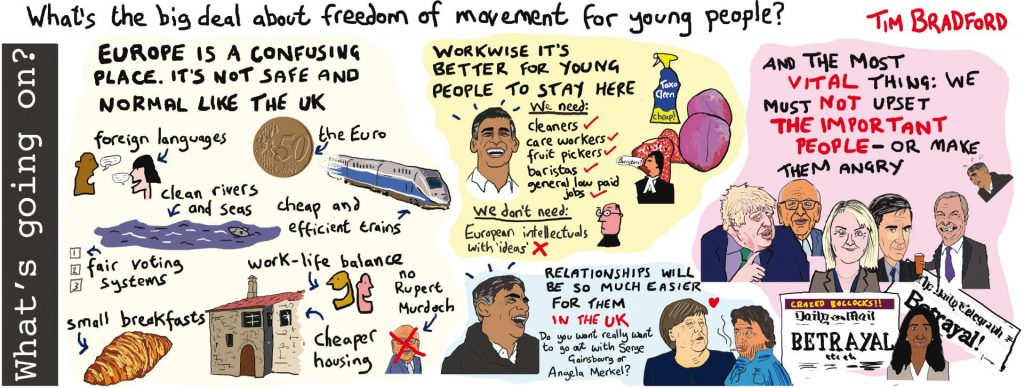 What's the big deal about freedom of movement for young people?
TIM BRADFORD
What's going on?
EUROPE IS A CONFUSING
PLACE. IT'S NOT SAFE AND
NORMAL LIKE THE UK
foreign languages
50
the Euro
clean rivers
and seas
cheap and
efficient trains
1
2
3
fair voting
systems
work-life balance
small breakfasts
cheaper
housing
no
Rupert
Murdoch
WORKWISE IT'S
BETTER FOR YOUNG
PEOPLE TO STAY HERE
We need:
cleaners
care workers
fruit pickers
baristas
general low paid
jobs
Toxo
Cleen
cheap!
We don't need:
European intellectuals
with 'ideas'
RELATIONSHIPS WILL
BE SO MUCH EASIER
FOR THEM
IN THE UK
Do you want really want
to go out with Serge
Gainsburg or
Angela Merkel?
AND THE MOST
VITAL THING: WE
MUST NOT UPSET
THE IMPORTANT
PEOPLE – OR MAKE
THEM ANGRY
CRAZED BOLLOCKS!!
Daily Mail
BETRAYAL
Betrayal!